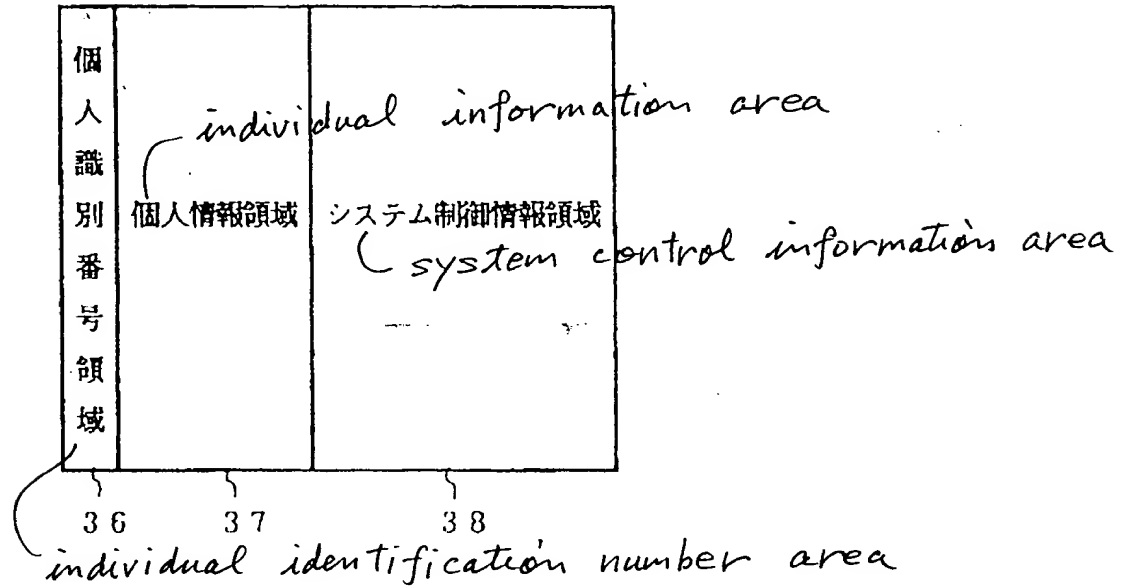 個人識別番号領域
individual information area
個人情報領域 システム制御情報領域
system control information area
36 37 38
individual identification number area